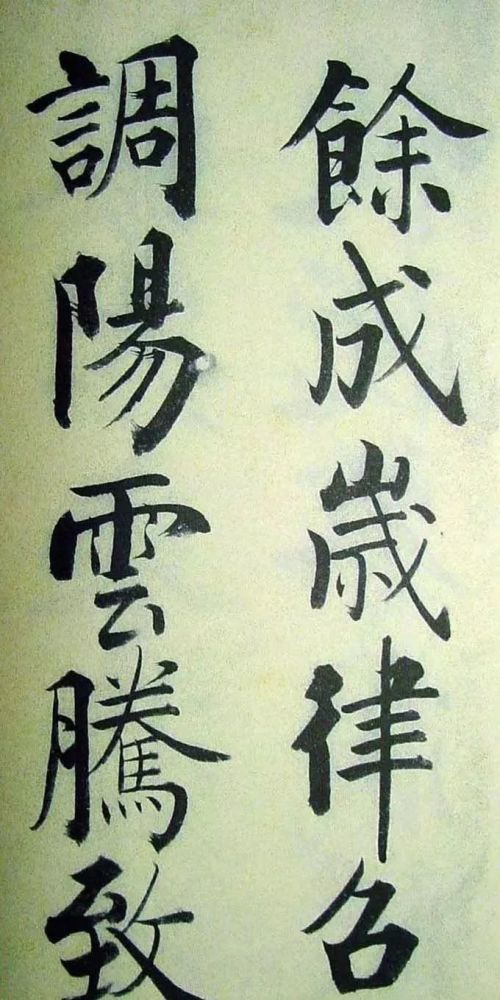 餘成嵗律召
調陽雲騰致